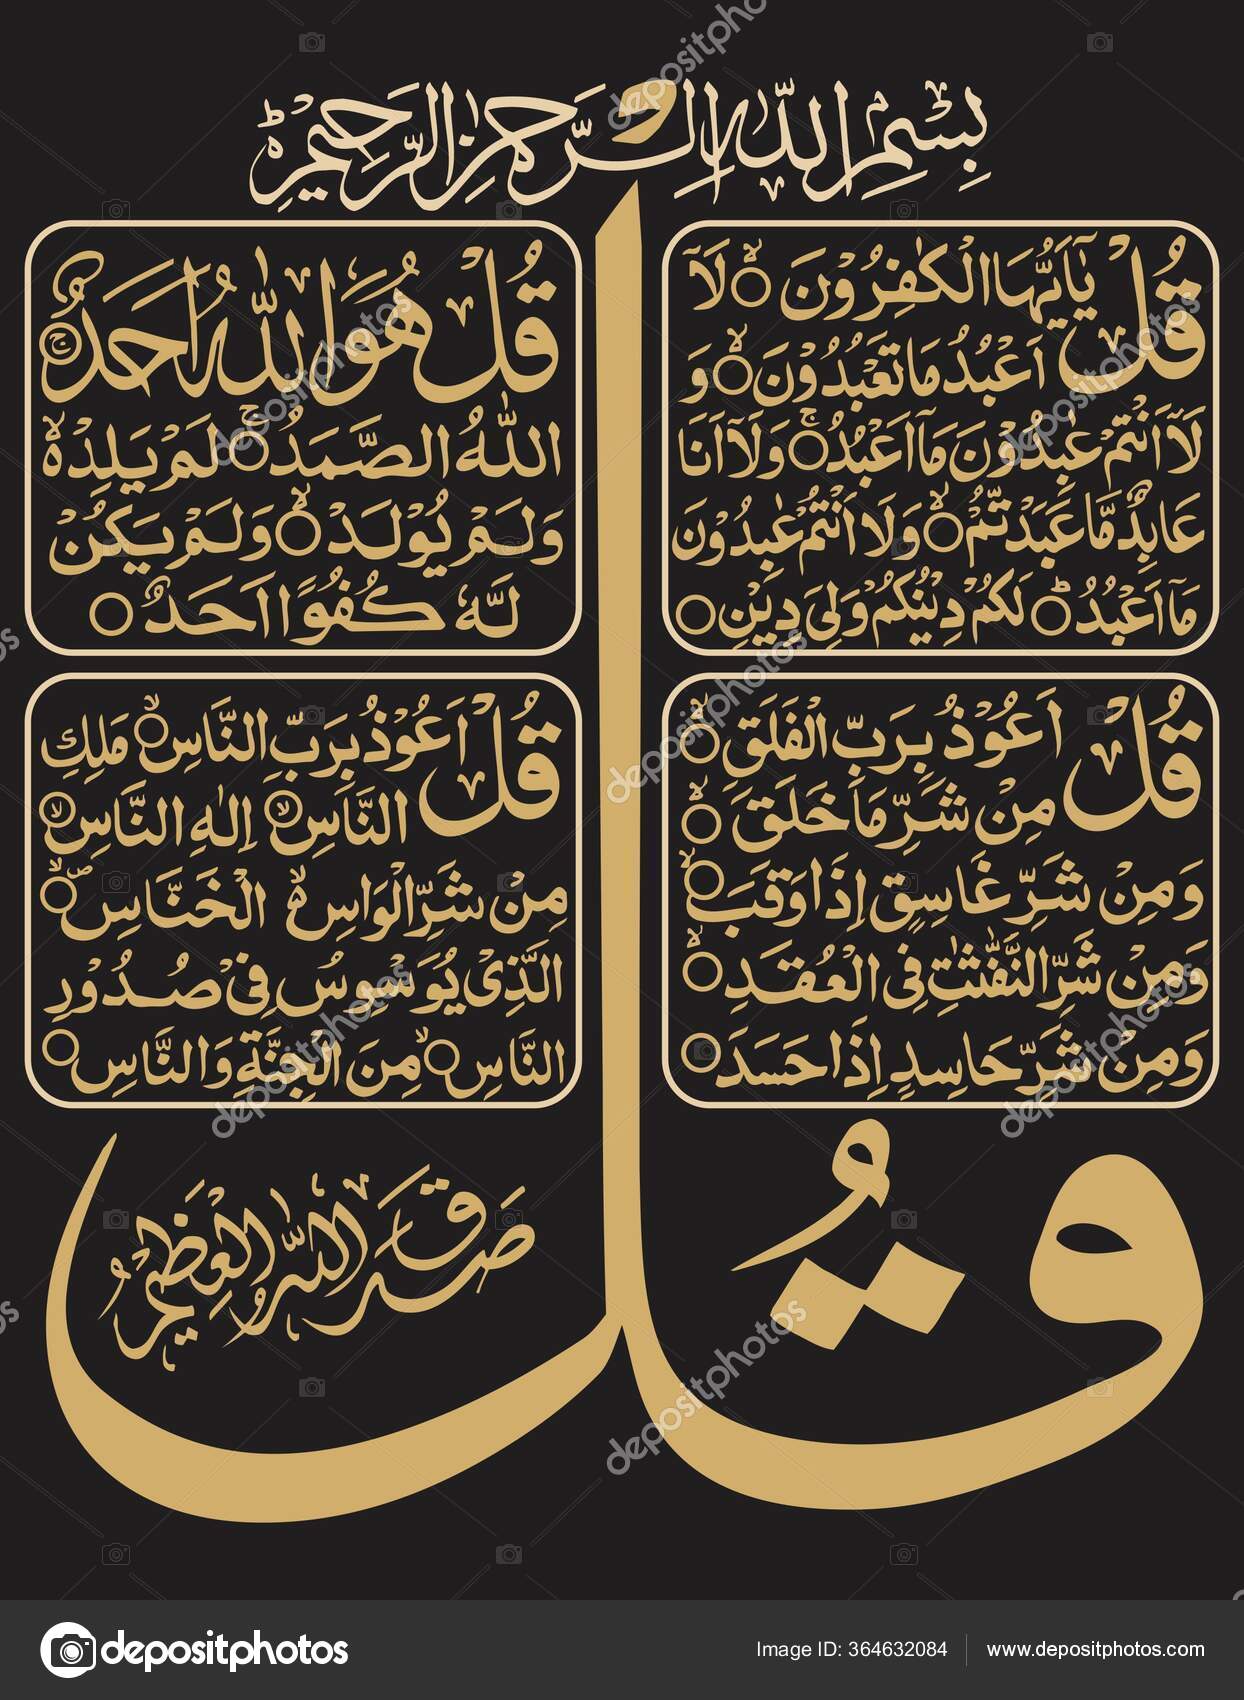 بِسْمِ اللّٰهِ الرَّحْمٰنِ الرَّحِيْمِ
قُلْ يٰٓاَيُّهَا الْكٰفِرُوْنَ ۙ لَآ
اَعْبُدُ مَا تَعْبُدُوْنَ ۙ وَ
لَآ اَنْتُمْ عٰبِدُوْنَ مَآ اَعْبُدُ ۚ وَلَآ اَنَا
عَابِدٌ مَّا عَبَدْتُّمْ ۙ وَلَا اَنْتُمْ عٰبِدُوْنَ
مَآ اَعْبُدُ ؕ لَكُمْ دِيْنُكُمْ وَلِيَ دِيْنِ
قُلْ هُوَ اللّٰهُ اَحَدٌ ۚ
اللّٰهُ الصَّمَدُ ۚ لَمْ يَلِدْ ۙ
وَلَمْ يُوْلَدْ ۙ وَلَمْ يَكُنْ
لَّهٗ كُفُوًا اَحَدٌ
قُلْ اَعُوْذُ بِرَبِّ الْفَلَقِ ۙ
مِنْ شَرِّ مَا خَلَقَ ۙ
وَمِنْ شَرِّ غَاسِقٍ اِذَا وَقَبَ ۙ
وَمِنْ شَرِّ النَّفّٰثٰتِ فِى الْعُقَدِ ۙ
وَمِنْ شَرِّ حَاسِدٍ اِذَا حَسَدَ
قُلْ اَعُوْذُ بِرَبِّ النَّاسِ ۙ مَلِكِ
النَّاسِ ۙ اِلٰهِ النَّاسِ ۙ
مِنْ شَرِّ الْوَاسِ ۙ الْخَنَّاسِ ۙ
الَّذِىْ يُوَسْوِسُ فِىْ صُدُوْرِ
النَّاسِ ۙ مِنَ الْجِنَّةِ وَالنَّاسِ
صَدَقَ اللّٰهُ الْعَظِيْمُ
قُل
depositphotos
Image ID: 364632084
www.depositphotos.com